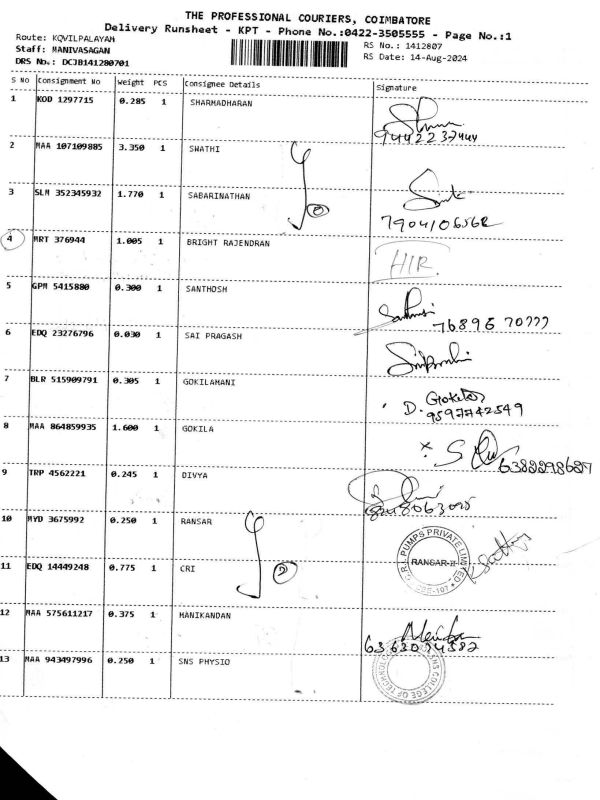 THE PROFESSIONAL COURIERS, COIMBATORE
Delivery Runsheet - KPT - Phone No.:0422-3505555 - Page No.:1
Route: KQVILPALAYAH
Staff: MANIVASAGAN
DRS No.: DCJB141280701
RS No.: 1412807
RS Date: 14-Aug-2024
S No Consignment No Weight PCS Consignee Details Signature
1 KOD 1297715 0.285 1 SHARMADHARAN
9442237444
2 MAA 107109885 3.350 1 SWATHI
3 SLM 352345932 1.770 1 SABARINATHAN
7904106562
4 MRT 376944 1.005 1 BRIGHT RAJENDRAN HIR.
5 GPM 5415880 0.300 1 SANTHOSH
76896 70777
6 EDQ 23276796 0.030 1 SAI PRAGASH
7 BLR 515909791 0.305 1 GOKILAMANI D. Gokila
9597742549
8 MAA 864859935 1.600 1 GOKILA
6382298687
9 TRP 4562221 0.245 1 DIVYA
10 MYD 3675992 0.250 1 RANSAR
PUMPS PRIVATE LIMITED
RANSAR-II
11 EDQ 14449248 0.775 1 CRI
12 MAA 575611217 0.375 1 MANIKANDAN
6363074582
13 MAA 943497996 0.250 1 SNS PHYSIO
COLLEGE OF TECHNOLOGY